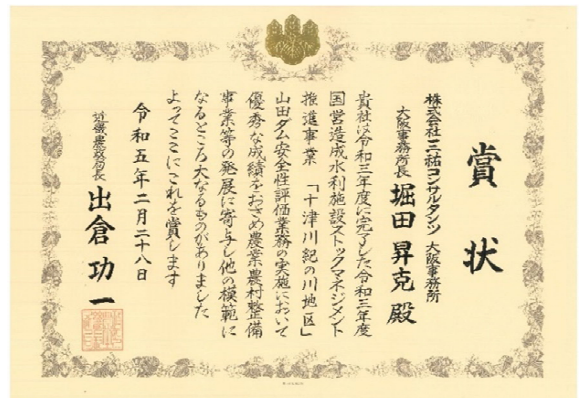 賞状
株式会社三祐コンサルタンツ 大阪事務所
大阪事務所長 堀田昇克殿
貴社は令和三年度に完了した令和三年度
国営造成水利施設ストックマネジメント
推進事業 「十津川紀の川地区」
山田ダム安全性評価業務の実施において
優秀な成績をおさめ農業農村整備
事業等の発展に寄与し他の模範に
なるところ大なるものがありました
よってここにこれを賞します
令和五年二月二十八日
近畿農政局長 出倉功一